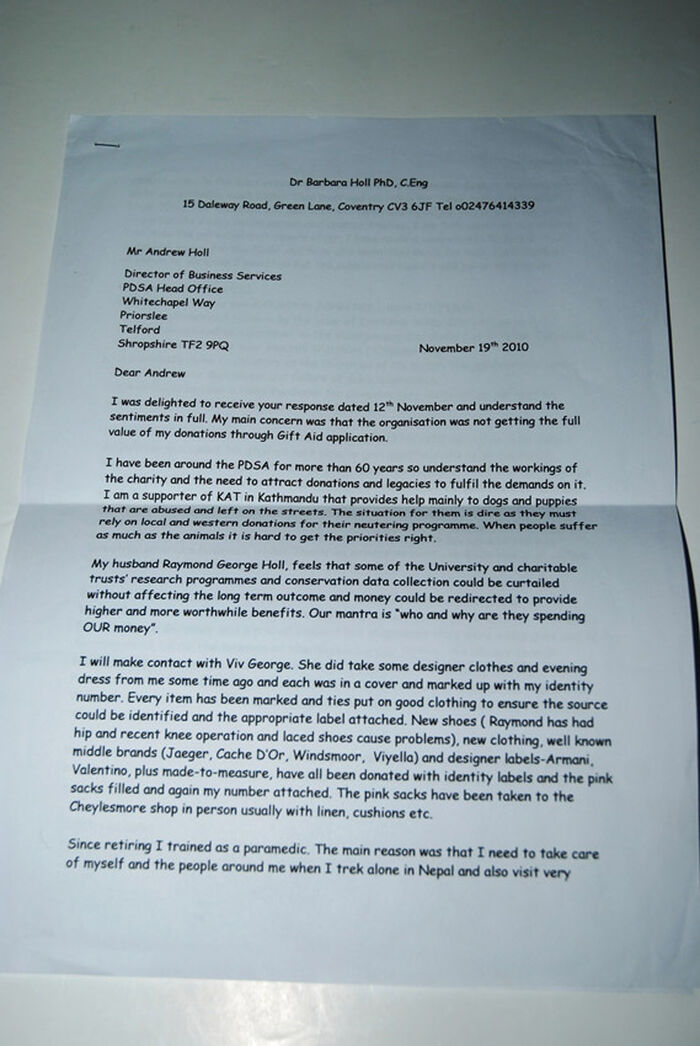 Dr Barbara Holl PhD, C.Eng
15 Daleway Road, Green Lane, Coventry CV3 6JF Tel o02476414339
Mr Andrew Holl
Director of Business Services
PDSA Head Office
Whitechapel Way
Priorslee
Telford
Shropshire TF2 9PQ
November 19th 2010
Dear Andrew
I was delighted to receive your response dated 12th November and understand the
sentiments in full. My main concern was that the organisation was not getting the full
value of my donations through Gift Aid application.
I have been around the PDSA for more than 60 years so understand the workings of
the charity and the need to attract donations and legacies to fulfil the demands on it.
I am a supporter of KAT in Kathmandu that provides help mainly to dogs and puppies
that are abused and left on the streets. The situation for them is dire as they must
rely on local and western donations for their neutering programme. When people suffer
as much as the animals it is hard to get the priorities right.
My husband Raymond George Holl, feels that some of the University and charitable
trusts' research programmes and conservation data collection could be curtailed
without affecting the long term outcome and money could be redirected to provide
higher and more worthwhile benefits. Our mantra is "who and why are they spending
OUR money".
I will make contact with Viv George. She did take some designer clothes and evening
dress from me some time ago and each was in a cover and marked up with my identity
number. Every item has been marked and ties put on good clothing to ensure the source
could be identified and the appropriate label attached. New shoes ( Raymond has had
hip and recent knee operation and laced shoes cause problems), new clothing, well known
middle brands (Jaeger, Cache D'Or, Windsmoor, Viyella) and designer labels-Armani,
Valentino, plus made-to-measure, have all been donated with identity labels and the pink
sacks filled and again my number attached. The pink sacks have been taken to the
Cheylesmore shop in person usually with linen, cushions etc.
Since retiring I trained as a paramedic. The main reason was that I need to take care
of myself and the people around me when I trek alone in Nepal and also visit very